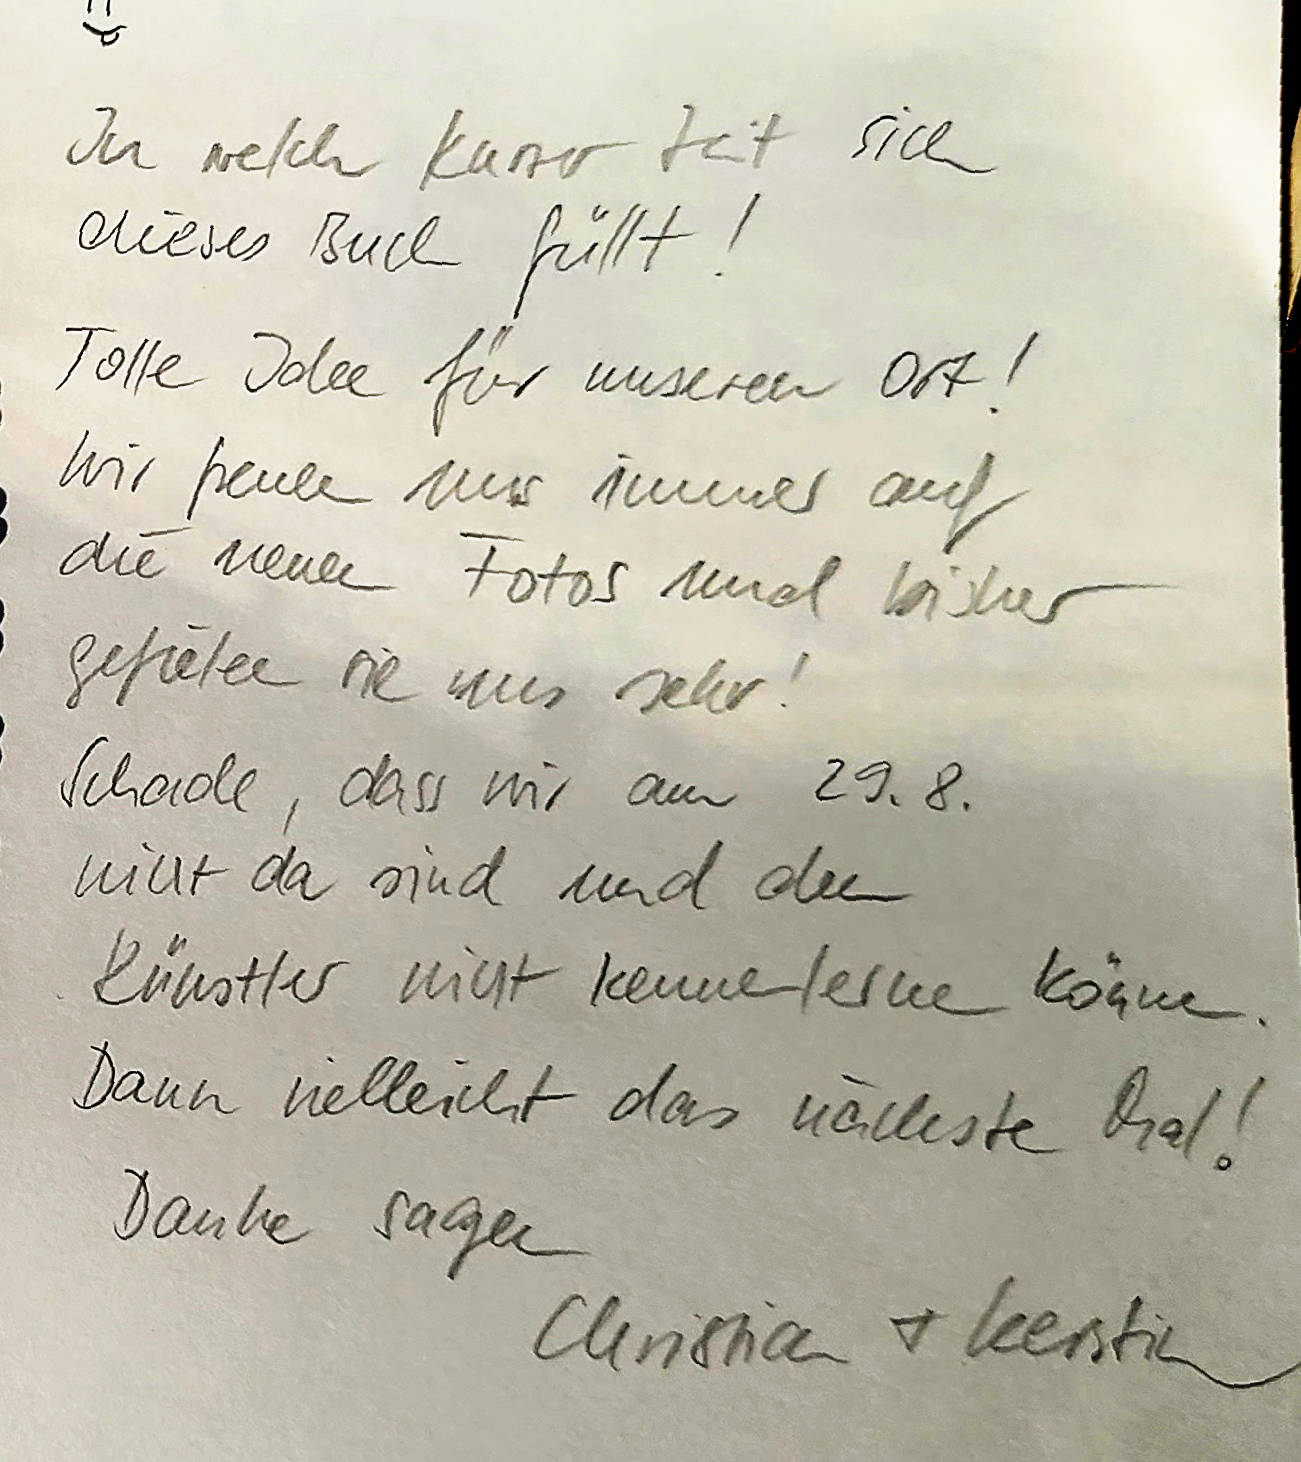 In welch kurzer Zeit sich
dieses Buch füllt!
Tolle Idee für unseren Ort!
Wir freuen uns immer auf
die neuen Fotos und bisher
gefielen sie uns sehr!
Schade, dass wir am 29.8.
nicht da sind und den
Künstler nicht kennenlernen können.
Dann vielleicht das nächste Mal!
Danke sagen
Christian + Kerstin